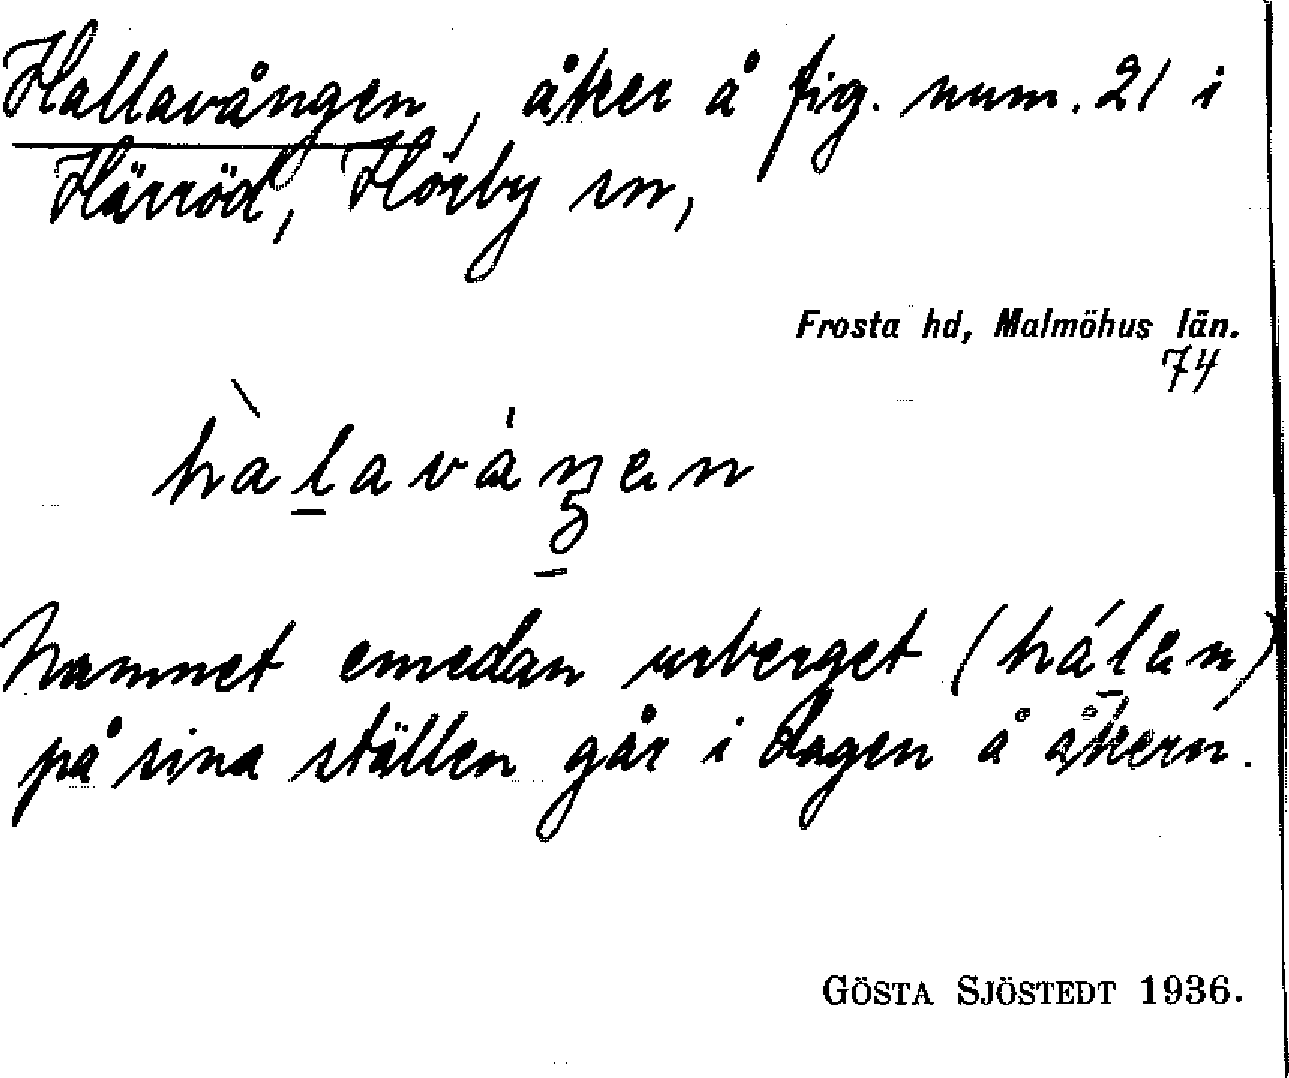 Hallavången, åker å fig. num. 21 i
Härröd, Hörby sn,
Frosta hd, Malmöhus län.
74
hàlavåŋen
Namnet emedan urberget (hálen)
på sina ställen går i dagen å åkern.
GÖSTA SJÖSTEDT 1936.